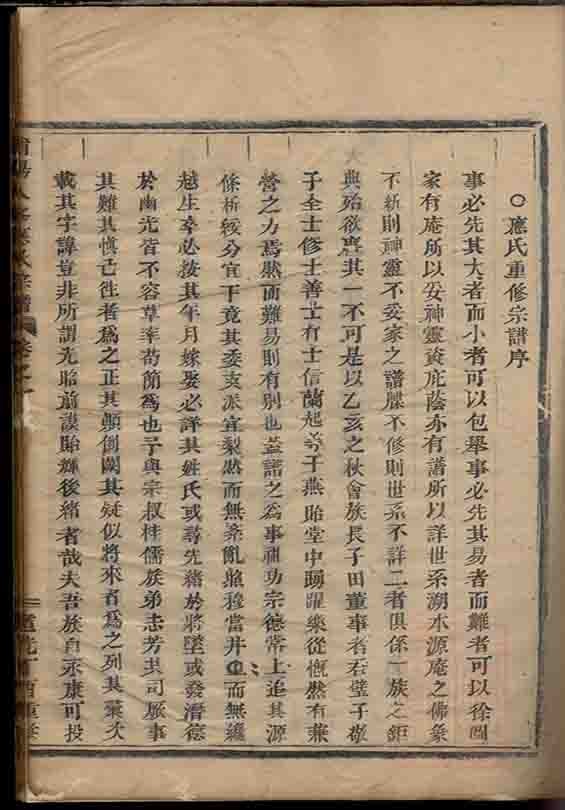 ○應氏重修宗譜序
事必先其大者而小者可以包舉事必先其易者而難者可以徐圖
家有庵所以妥神靈資庇蔭亦有譜所以詳世系溯水源庵之佛象
不新則神靈不妥家之譜牒不修則世系不詳二者俱係一族之鉅
典殆欲廢其一不可是以乙亥之秋會族長子田董事者君璧子敬
子全士修士善士有士信蘭起等于燕貽堂中踴躍樂從慨然有兼
營之力焉然而難易則有別也蓋譜之為事祖功宗德帶上追其源
條析緩分宜下竟其委支派宜梨然而無紊亂昭穆當井井而無
越生卒必按其年月嫁娶必詳其姓氏或尋先緒於將墜或發潛德
於幽光皆不容草率苟簡為也予與宗叔桂儒族弟志芳共司厥事
其難其慎已往者為之正其顛倒闕其疑似將來者為之列其葉次
載其字諱豈非所謂先貽前謨貽輝後緒者哉夫吾族自永康可投
氏宗譜
卷之一
道光丁酉重修